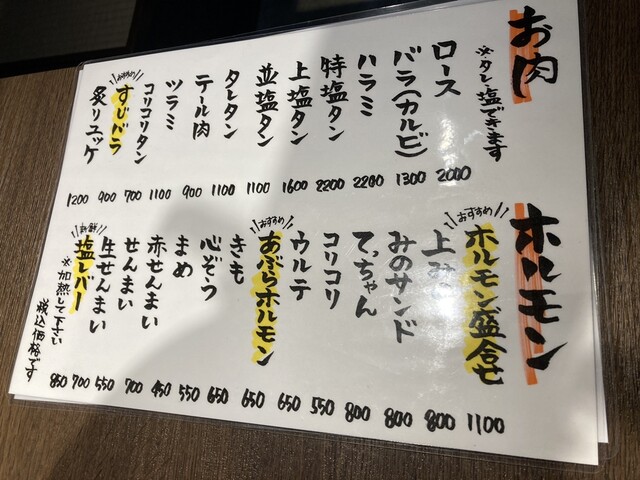 お肉
※タレ・塩できます
ロース 2000
バラ(カルビ) 1300
ハラミ 2200
特塩タン 2200
上塩タン 1600
並塩タン 1100
タレタン 1100
テール肉 900
ツラミ 1100
コリコリタン 700
おすすめ
すじバラ 900
炙りユッケ 1200
ホルモン
おすすめ
ホルモン盛合せ 1100
上み 800
みのサンド 800
てっちゃん 800
コリコリ 550
ウルテ 650
おすすめ
あぶらホルモン 650
きも 650
心ぞう 550
まめ 450
赤せんまい 700
せんまい 550
生せんまい 700
新鮮
塩レバー 850
※加熱して下さい
税込価格です